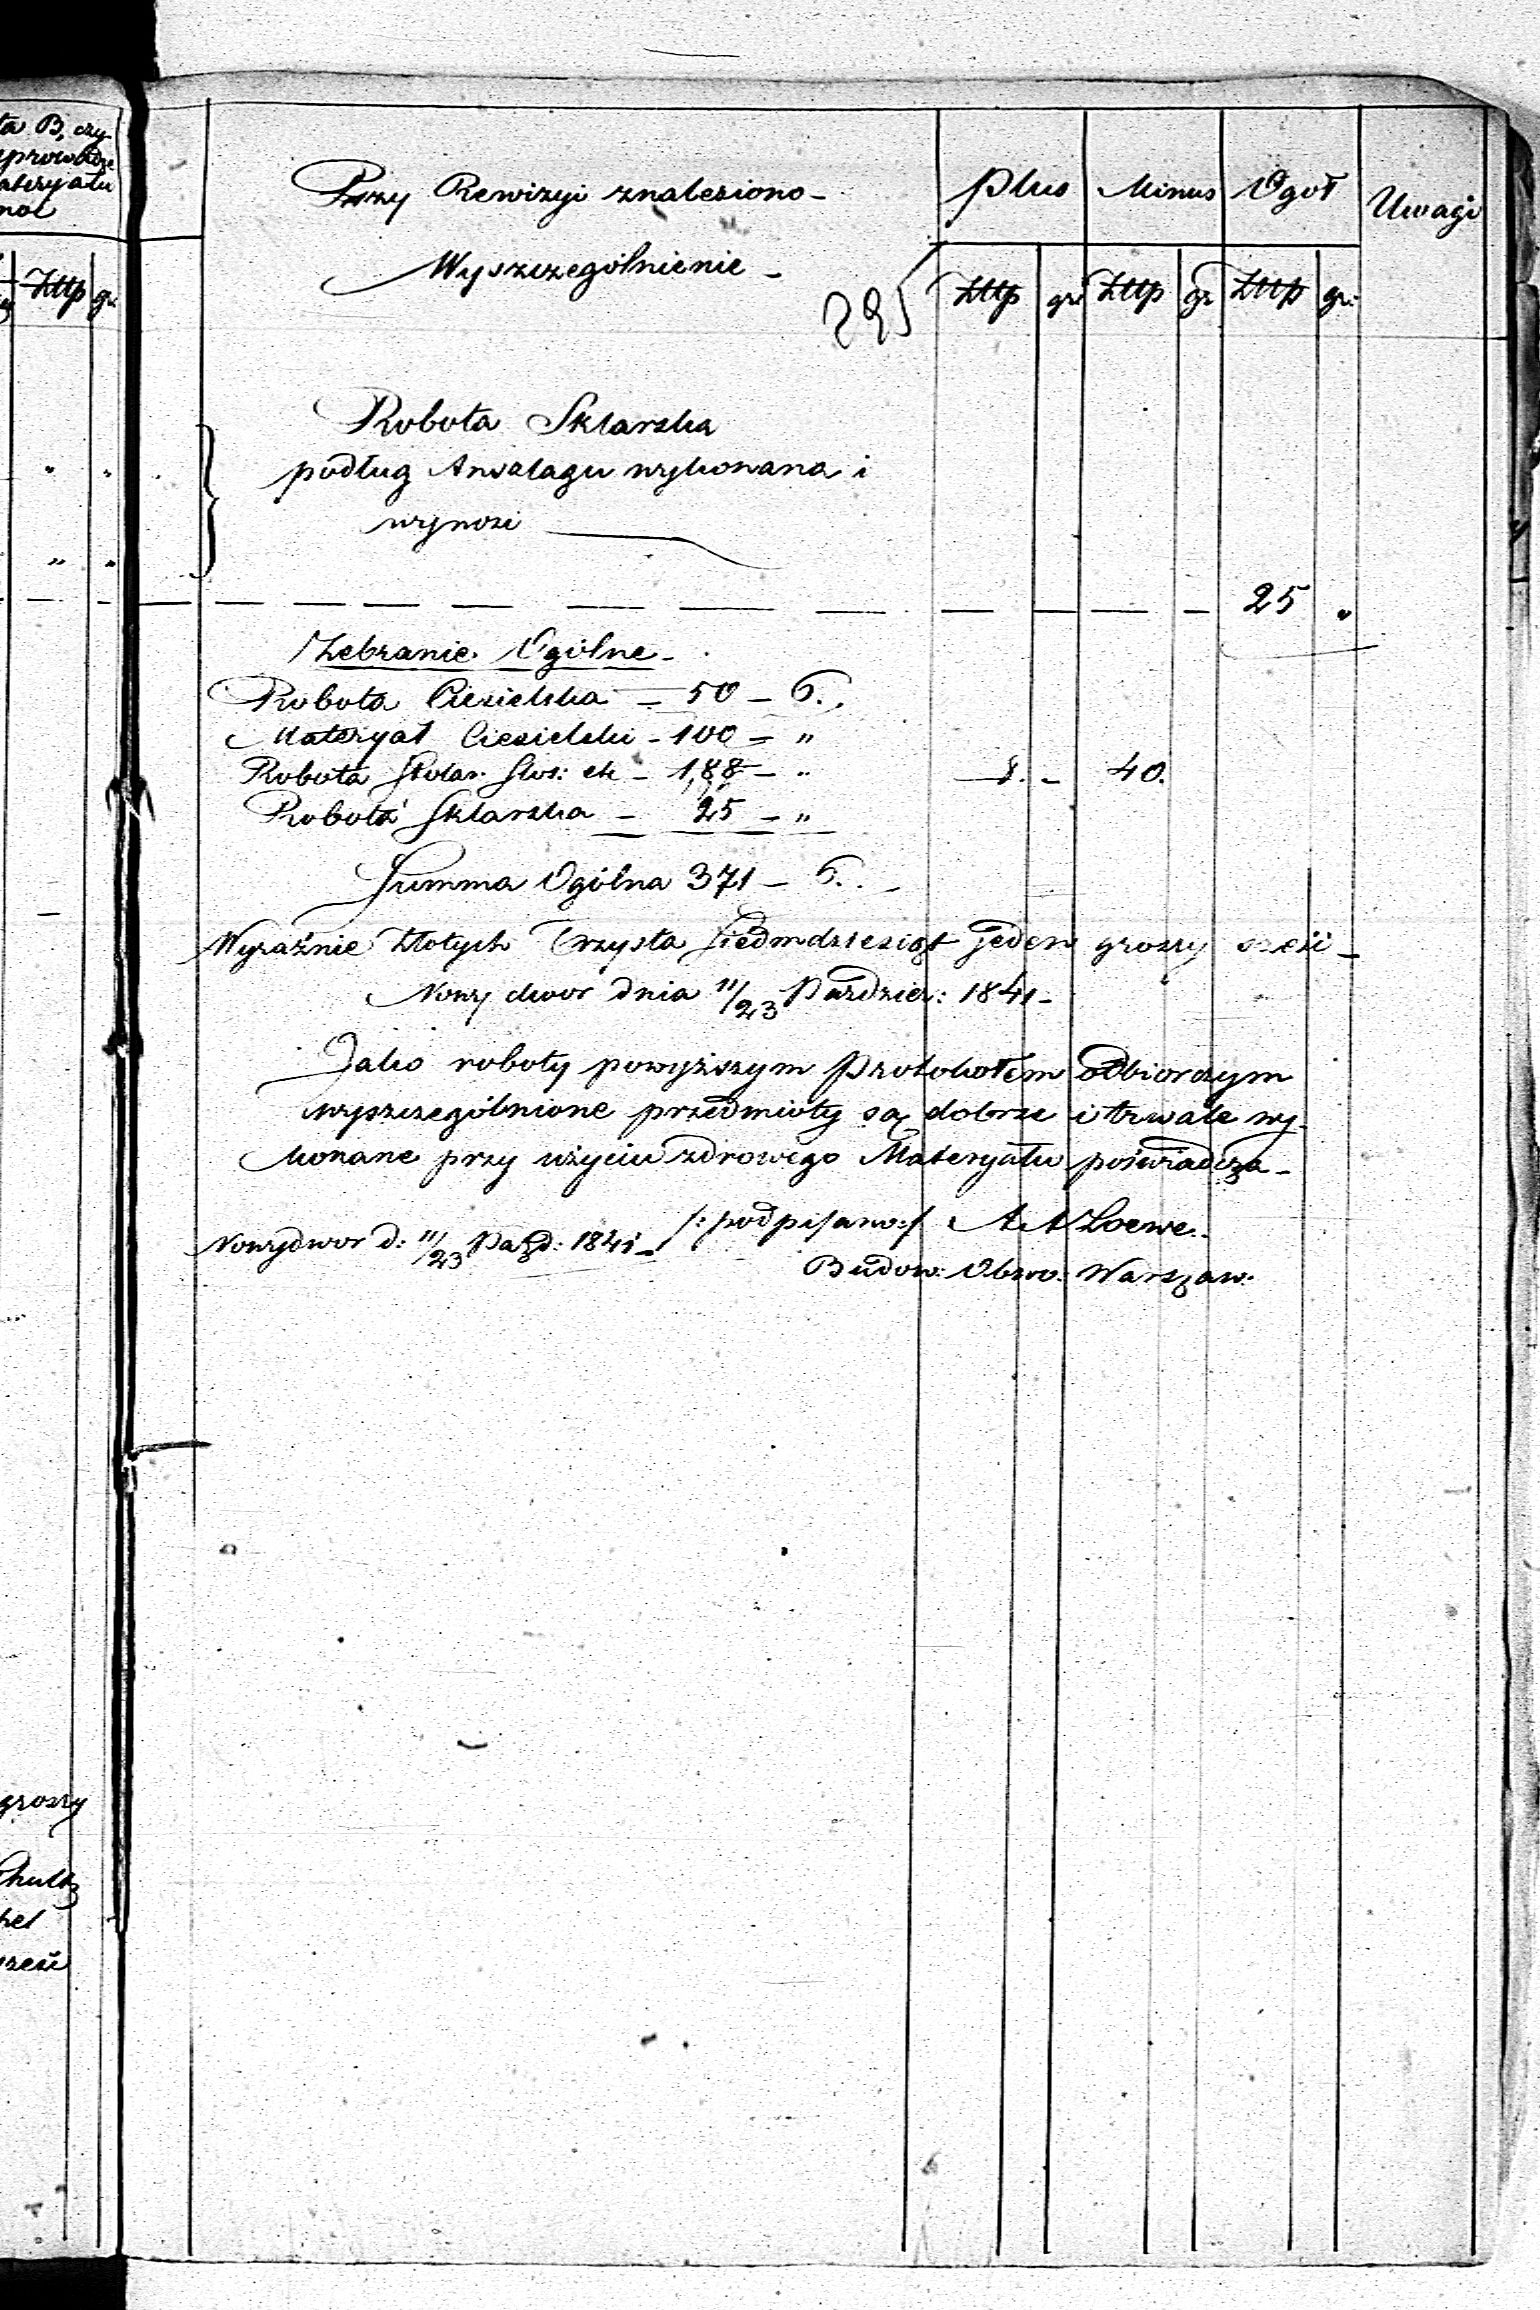 ta B, czy
sprowadze
ateryału
nol
Złtp gr.
Przy Rewizyi znaleziono -
Wyszczegolnienie -
295
Plus Minus Ogoł Uwagi
Złtp gr: Złtp gr Złtp gr:
Robota Sklarska
podług Anszlagu wykonana i
wynosi
25 "
Zebranie Ogólne -
Robota Ciesielska - 50 - 6.
Materyał Ciesielski - 100 - "
Robota Stolar. Slos: etc - 188 - " 8. - 40.
Robota Sklarska - 25 - "
Summa Ogólna 371 - 6. -
Wyraźnie Złotych Trzysta Siedmdziesiąt jeden groszy sześć -
Nowy dwor dnia 11/23 Pazdzier: 1841 -
Jako roboty powyższym Protokołem odbiorczym
wyszczególnione przedmioty są dobrze i trwale wy-
konane przy użyciu zdrowego Materyału poświadcza -
/: podpisano :/ A A Loewe.
Nowydwor d: 11/23 Pazd: 1841 -
Budow: Obwo: Warszaw.
groszy
Chultz
kel
rzeki